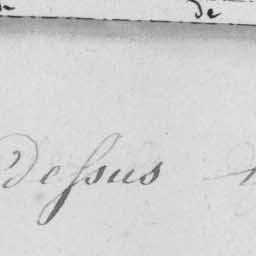 de
dessus